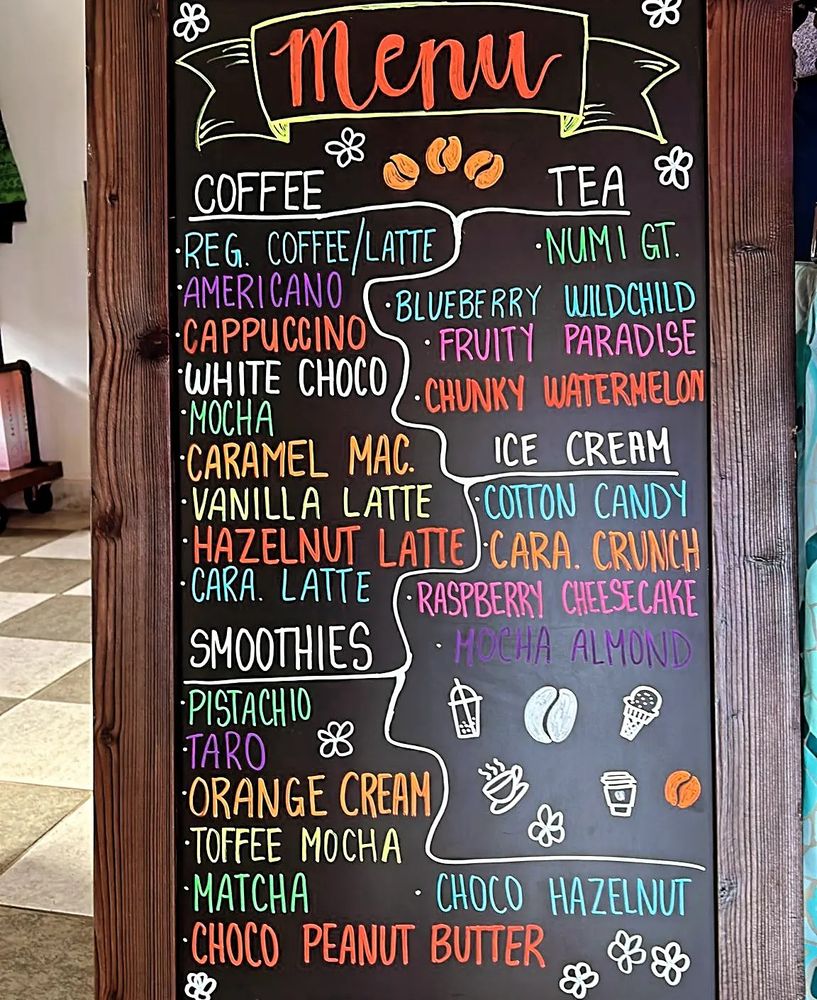 Menu
COFFEE
· REG. COFFEE/LATTE
· AMERICANO
· CAPPUCCINO
· WHITE CHOCO
· MOCHA
· CARAMEL MAC.
· VANILLA LATTE
· HAZELNUT LATTE
· CARA. LATTE
SMOOTHIES
· PISTACHIO
· TARO
· ORANGE CREAM
· TOFFEE MOCHA
· MATCHA
· CHOCO HAZELNUT
· CHOCO PEANUT BUTTER
TEA
· NUMI GT.
· BLUEBERRY WILDCHILD
· FRUITY PARADISE
· CHUNKY WATERMELON
ICE CREAM
· COTTON CANDY
· CARA. CRUNCH
· RASPBERRY CHEESECAKE
· MOCHA ALMOND